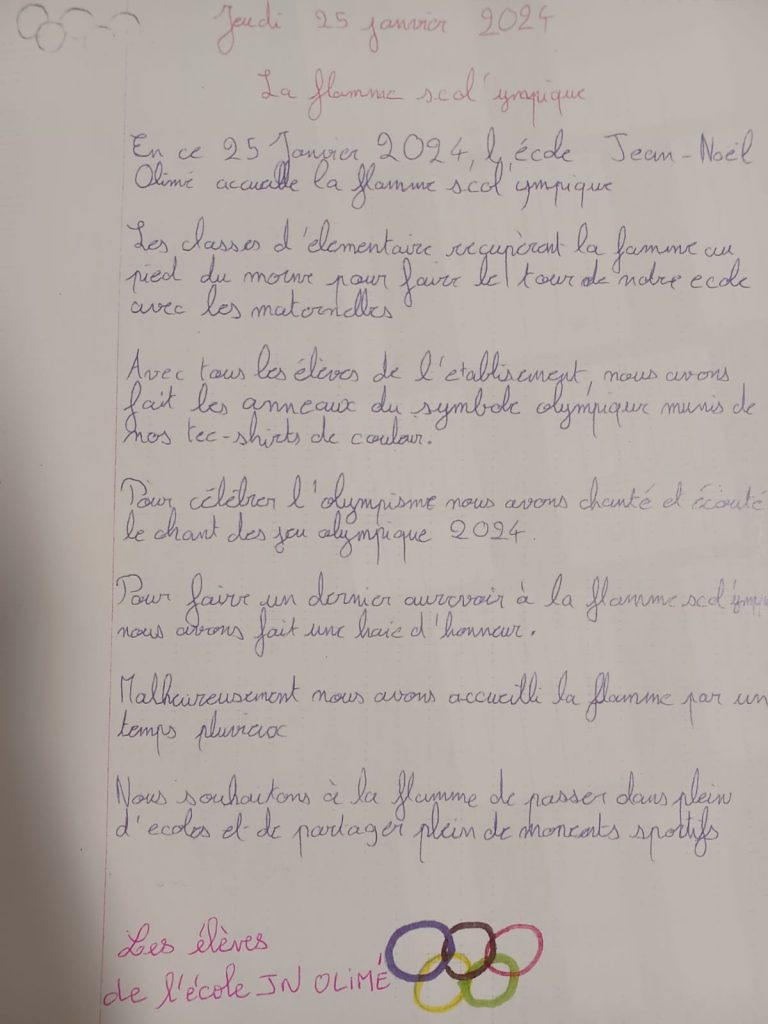 Jeudi 25 janvier 2024
La flamme scol'ympique
En ce 25 Janvier 2024, l'école Jean-Noël
Olimé accueille la flamme scol'ympique
Les classes d'élementaire recupèrent la famme au
pied du morne pour faire le tour de notre ecole
avec les maternelles
Avec tous les élèves de l'etablisement, nous avons
fait les anneaux du symbole olympique munis de
nos tee-shirts de couleur.
Pour célébrer l'olympisme nous avons chanté et écouté
le chant des jeu olympique 2024.
Pour faire un dernier aurevoir à la flamme scol'ympique
nous avons fait une haie d'honneur.
Malheureusement nous avons accueilli la flamme par un
temps pluvieux
Nous souhaitons à la flamme de passer dans plein
d'ecoles et de partager plein de moments sportifs
Les élèves
de l'école JN OLIMÉ